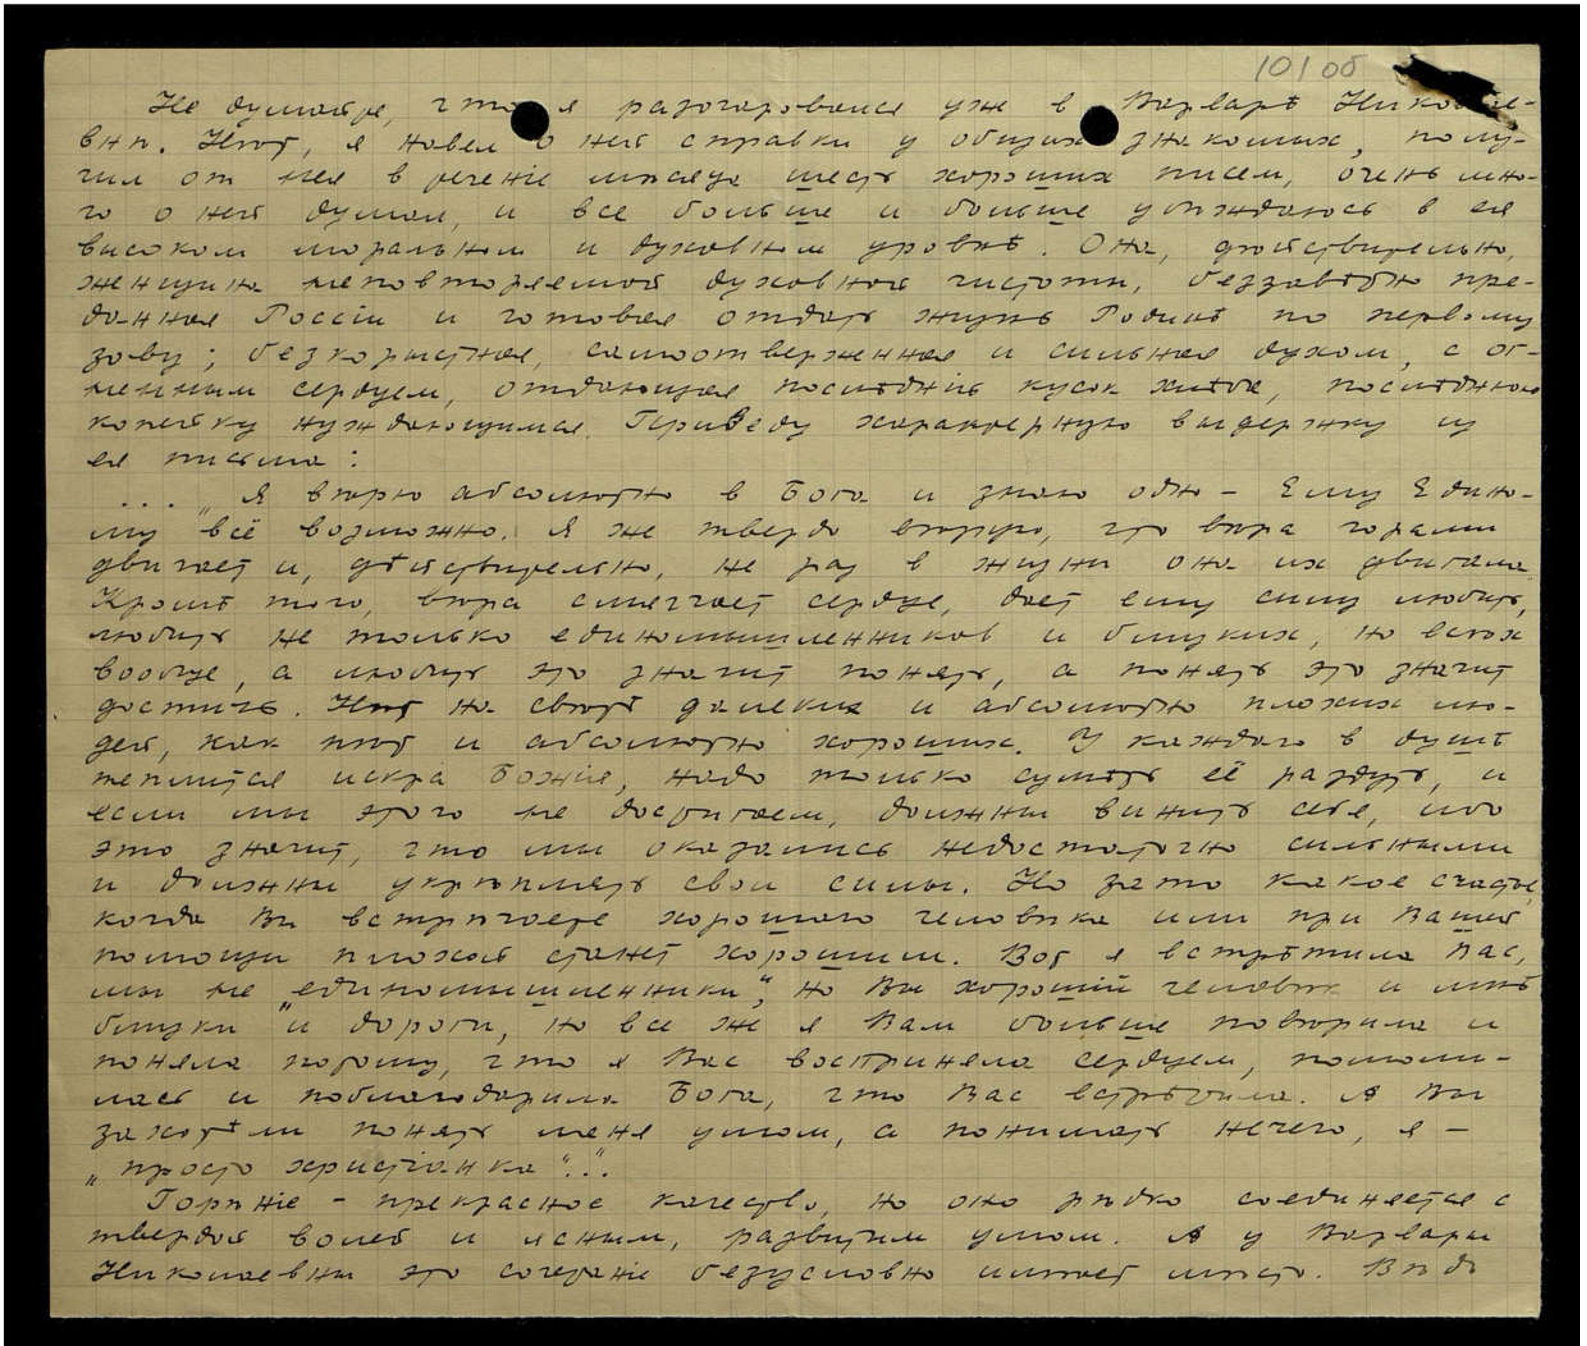 101 об
Не думайте, что я разочаровался уже в Варварѣ Николае-
внѣ. Нѣт, я навел о ней справки у общих знакомых, полу-
чил от нея в теченіе мѣсяца шесть хороших писем, очень мно-
го о ней думал, и все больше и больше убѣждаюсь в ея
высоком моральном и духовном уровнѣ. Она, дѣйствительно,
женщина неповторяемой духовной чистоты, беззавѣтно пре-
данная Россіи и готовая отдать жизнь Родинѣ по первому
зову; безкорыстная, самоотверженная и сильная духом, с ог-
ненным сердцем, отдающая послѣдній кусок хлѣба, послѣднюю
копейку нуждающимся. Приведу характерную выдержку из
ея письма:
... „Я вѣрю абсолютно в Бога и знаю одно – Ему Едино-
му всё возможно. Я же твердо вѣрую, что вѣра горами
двигает и, дѣйствительно, не раз в жизни она их двигала.
Кромѣ того, вѣра смягчает сердце, дает ему силу любить,
любить не только единомышленников и близких, но всѣх
вообще, а любить это значит понять, а понять это значит
достичь. Нѣт на свѣтѣ далеких и абсолютно плохих лю-
дей, как нѣт и абсолютно хороших. У каждаго в душѣ
теплится искра Божія, надо только сумѣть её раздуть, и
если мы этого не достигаем, должны винить себя, ибо
это значит, что мы оказались недостаточно сильными
и должны укрѣплять свои силы. Но зато какое счастье,
когда Вы встрѣчаете хорошаго человѣка или при Вашей
помощи плохой станет хорошим. Вот я встрѣтила Вас,
мы не „единомышленники“, но Вы хорошій человѣк и мнѣ
близки и дороги, но все же я Вам больше повѣрила и
поняла потому, что я Вас восприняла сердцем, помоли-
лась и поблагодарила Бога, что Вас встрѣтила. А Вы
захотѣли понять меня умом, а понимать нечего, я –
„просто христіанка“...
Горѣніе – прекрасное качество, но оно рѣдко соединяется с
твердой волей и ясным, развитым умом. А у Варвары
Николаевны это сочетаніе безусловно имѣет мѣсто. Вѣдь